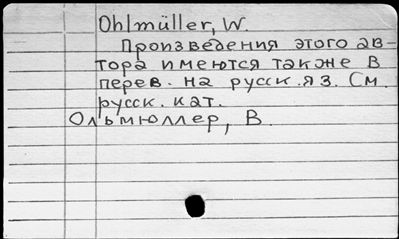 Ohlmüller, W.
Произведения этого ав-
тора имеются также в
перев. на русск. яз. См.
русск. кат.
Ольмюллер, В.